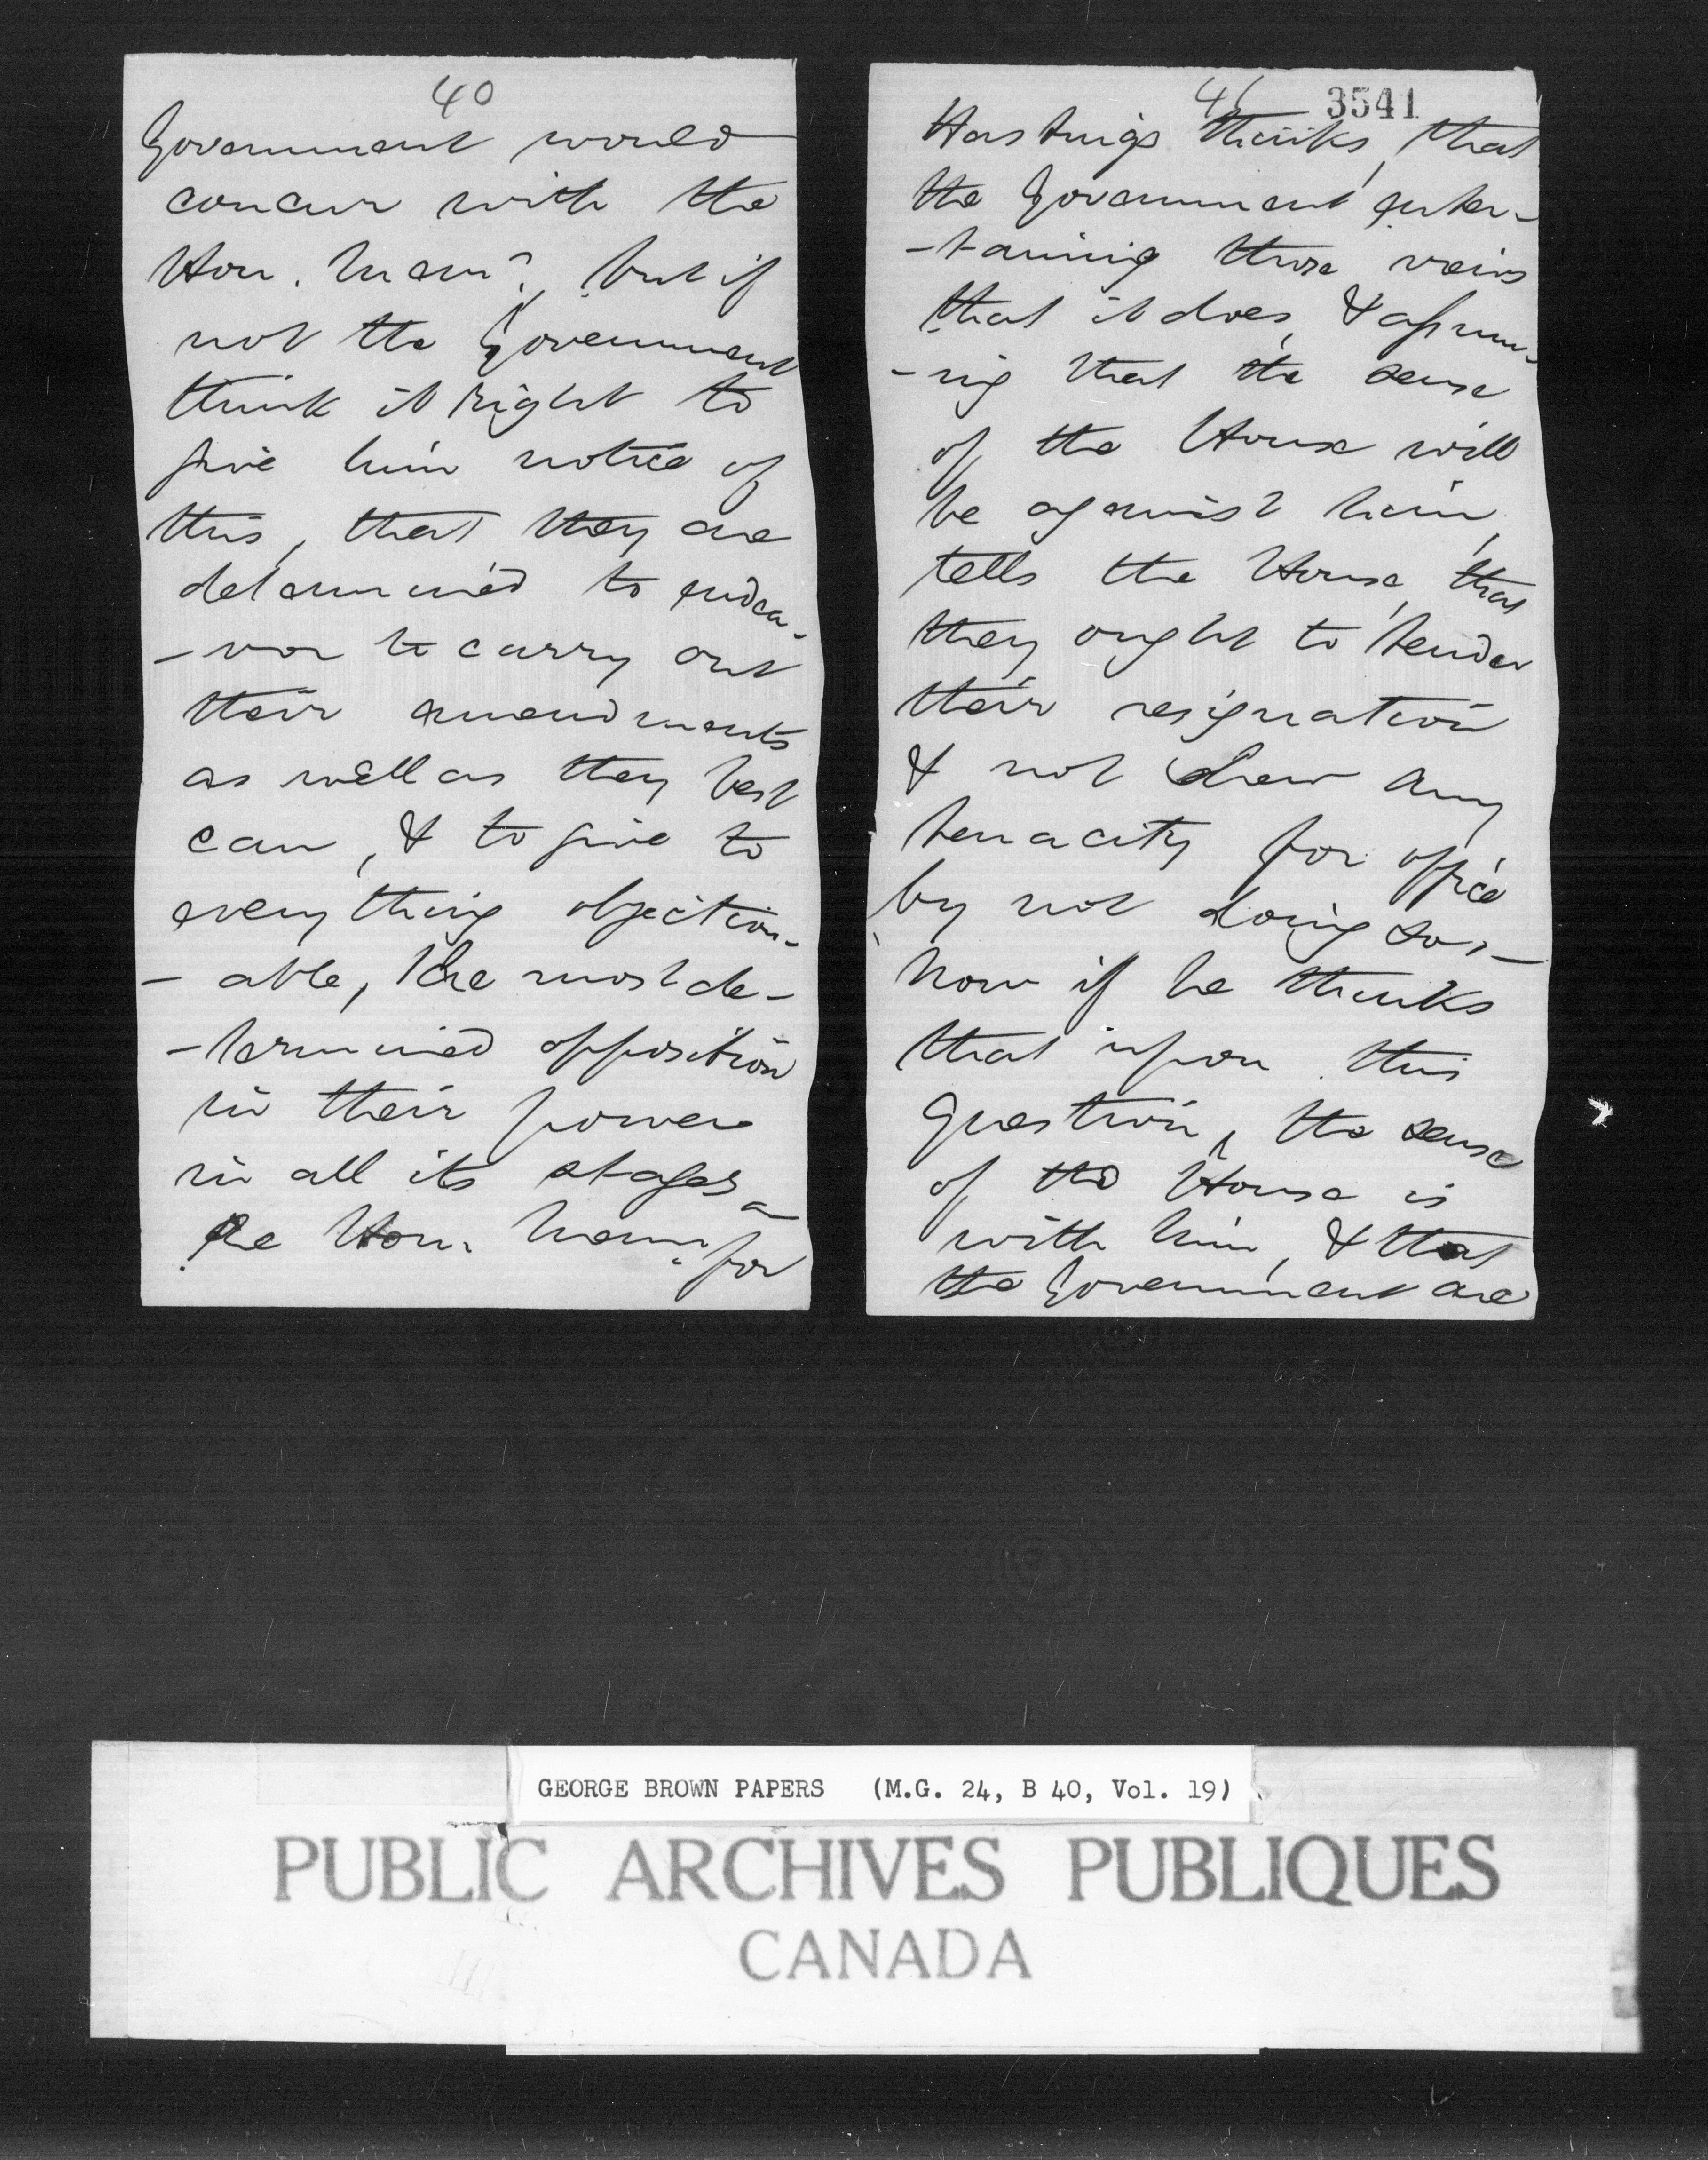 40
Government would
concur with the
Hon. Mem.r, but if
not the Government
think it right to
give him notice of
this, that they are
determined to endea-
-vor to carry out
their amendments
as well as they best
can, & to give to
every thing objection-
-able, the most de-
-termined opposition
in their power
in all its stages
The Hon. Mem. for
41 3541
Hastings thinks, that
the Government enter-
-taining those veiws
that it does, & assum-
-ing that the sense
of the House will
be against him,
tells the House, that
they ought to tender
their resignation
& not shew any
tenacity for office
by not doing so,—
Now if he thinks
that upon this
question, the sense
of the House is
with him, & that
the Government are
GEORGE BROWN PAPERS (M.G. 24, B 40, Vol. 19)
PUBLIC ARCHIVES PUBLIQUES
CANADA